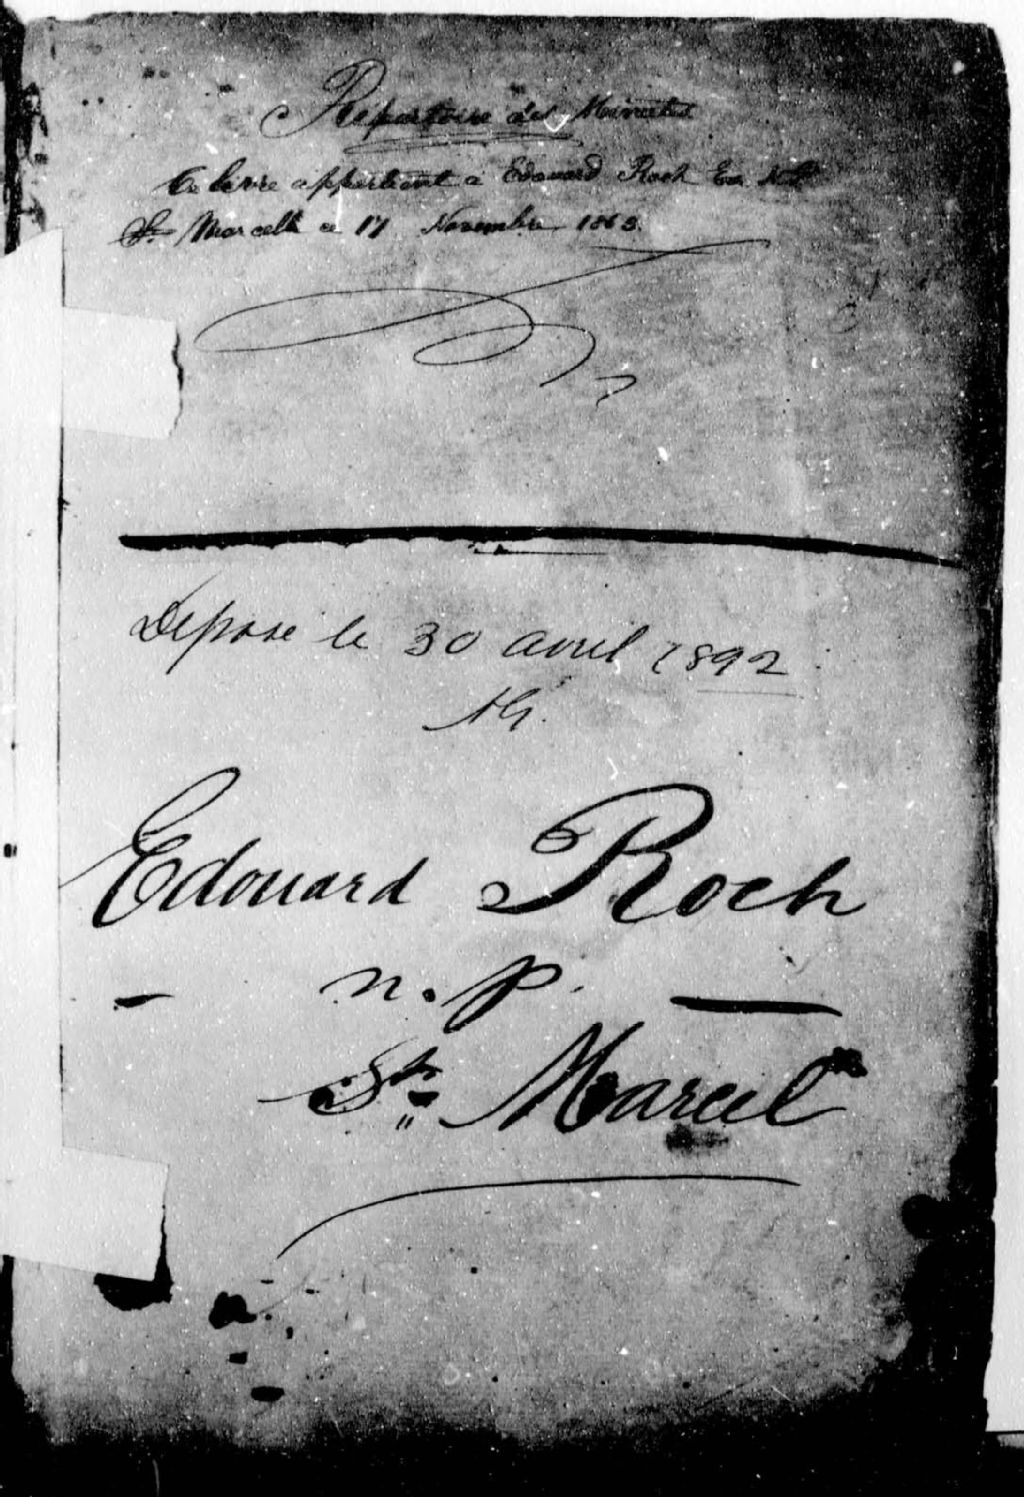 Répertoire des Minutes
Ce livre appartient a Edouard Roch Ec. N.P
St. Marcelle ce 17 Novembre 1863.
Deposé le 30 avril 1892
Edouard Roch
n. p.
St. Marcel